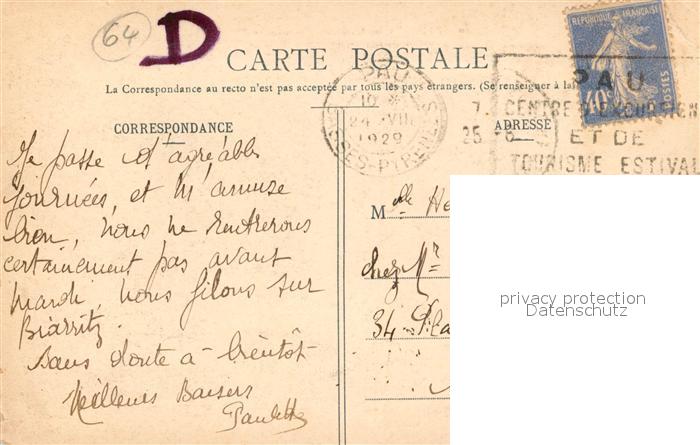 64 D
CARTE POSTALE
La Correspondance au recto n'est pas acceptée par tous les pays étrangers. (Se renseigner à la
CORRESPONDANCE
ADRESSE
REPUBLIQUE FRANÇAISE
POSTES
40c
PAU
24 VIII
1929
BSSES-PYRENEES
PAU
CENTRE D'EXCURSION
ET DE
TOURISME ESTIVAL
Je passe d'agréables
journées, et m'amuse
bien, nous ne rentrerons
certainement pas avant
mardi, nous filons sur
Biarritz.
Sans doute à bientôt
Meilleurs Baisers
Paulette
Melle He
chez Mr
34
privacy protection
Datenschutz